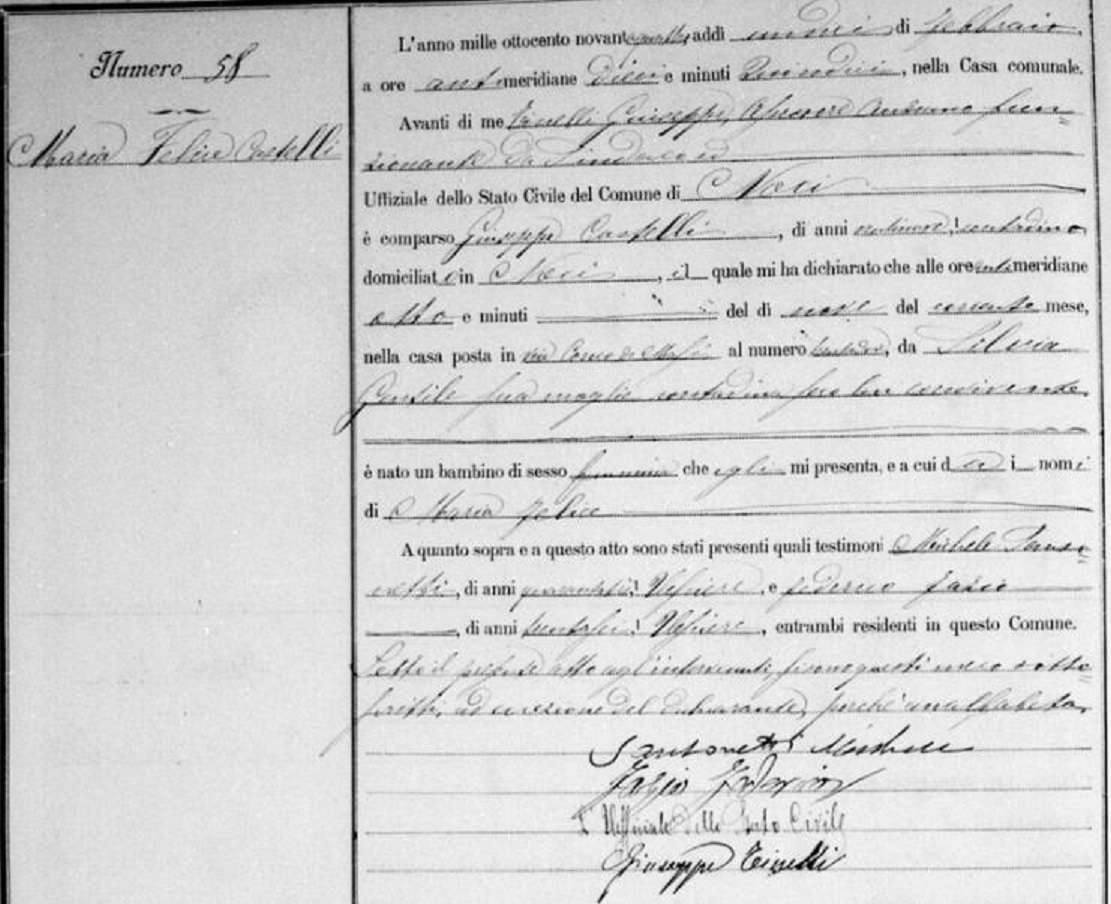 Numero 58
Maria Felice Castelli
L'anno mille ottocento novantaquattro, addì undici di febbraio,
a ore antimeridiane dieci e minuti quindici, nella Casa comunale.
Avanti di me Tinelli Giuseppe, Assessore anziano fun=
zionante da Sindaco ed
Uffiziale dello Stato Civile del Comune di Noci
è comparso Giuseppe Castelli, di anni contadino
domiciliato in Noci, il quale mi ha dichiarato che alle ore antimeridiane
otto e minuti del dì nove del corrente mese,
nella casa posta in via al numero, da Silvia
Gentile sua moglie contadina seco lui convivente
è nato un bambino di sesso femminino che egli mi presenta, e a cui dà i nomi
di Maria Felice
A quanto sopra e a questo atto sono stati presenti quali testimoni Michele Santo=
netti, di anni Usciere, e Federico Fazio
, di anni trentasei, Usciere, entrambi residenti in questo Comune.
Letto il presente atto agl'intervenuti, si sono questi meco sotto=
scritti, ad eccezione del dichiarante, perché analfabeta.
Santonetti Michele
Fazio Federico
L'Uffiziale dello Stato Civile
Giuseppe Tinelli